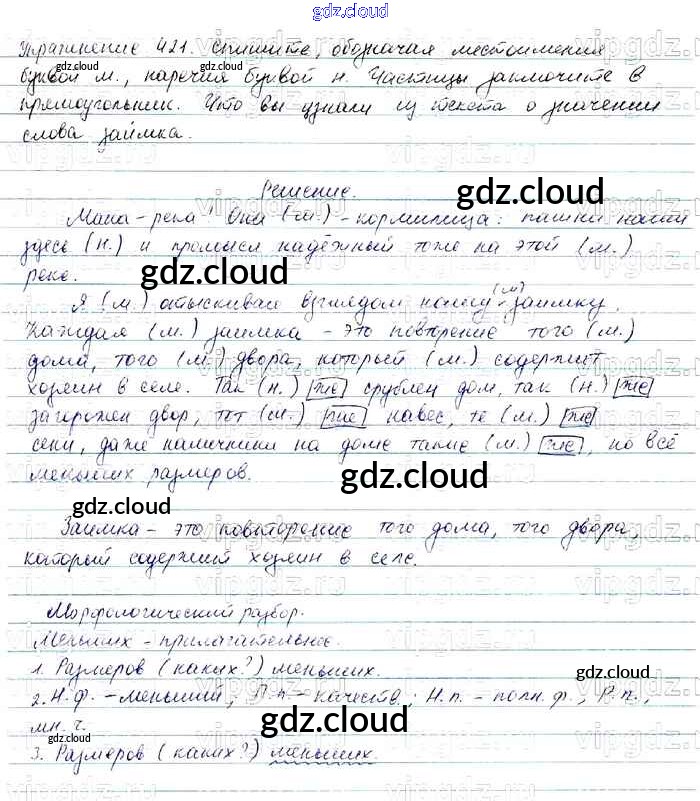 gdz.cloud
Упражнение 421. Спишите, обозначая местоимения
буквой м., наречия буквой н. Частицы заключите в
прямоугольник. Что вы узнали из текста о значении
слова заимка.
Решение.
gdz.cloud
Мана – река! Она (м.) – кормилица: пашни
здесь (н.) и промысел надёжный тоже на этой (м.)
реке.
gdz.cloud
(м)
Я (м.) отыскиваю взглядом нашу заимку.
Каждая (м.) заимка – это повторение того (м.)
дома, того (м.) двора, который (м.) содержит
хозяин в селе. Так (н.) же срублен дом, так (н.) же
загорожен двор, тот (м.) же навес, те (м.) же
сени, даже наличники на доме такие (м.) же, но всё
меньших размеров.
gdz.cloud
gdz.cloud
Заимка – это повторение того дома, того двора,
который содержит хозяин в селе.
Морфологический разбор.
Меньших – прилагательное.
1. Размеров (каких?) меньших.
gdz.cloud
2. Н.ф. – меньший; П.п – качеств.; Н.п. – полн. ф., Р.п.,
мн. ч.
gdz.cloud
3. Размеров (каких?) меньших.
gdz.cloud